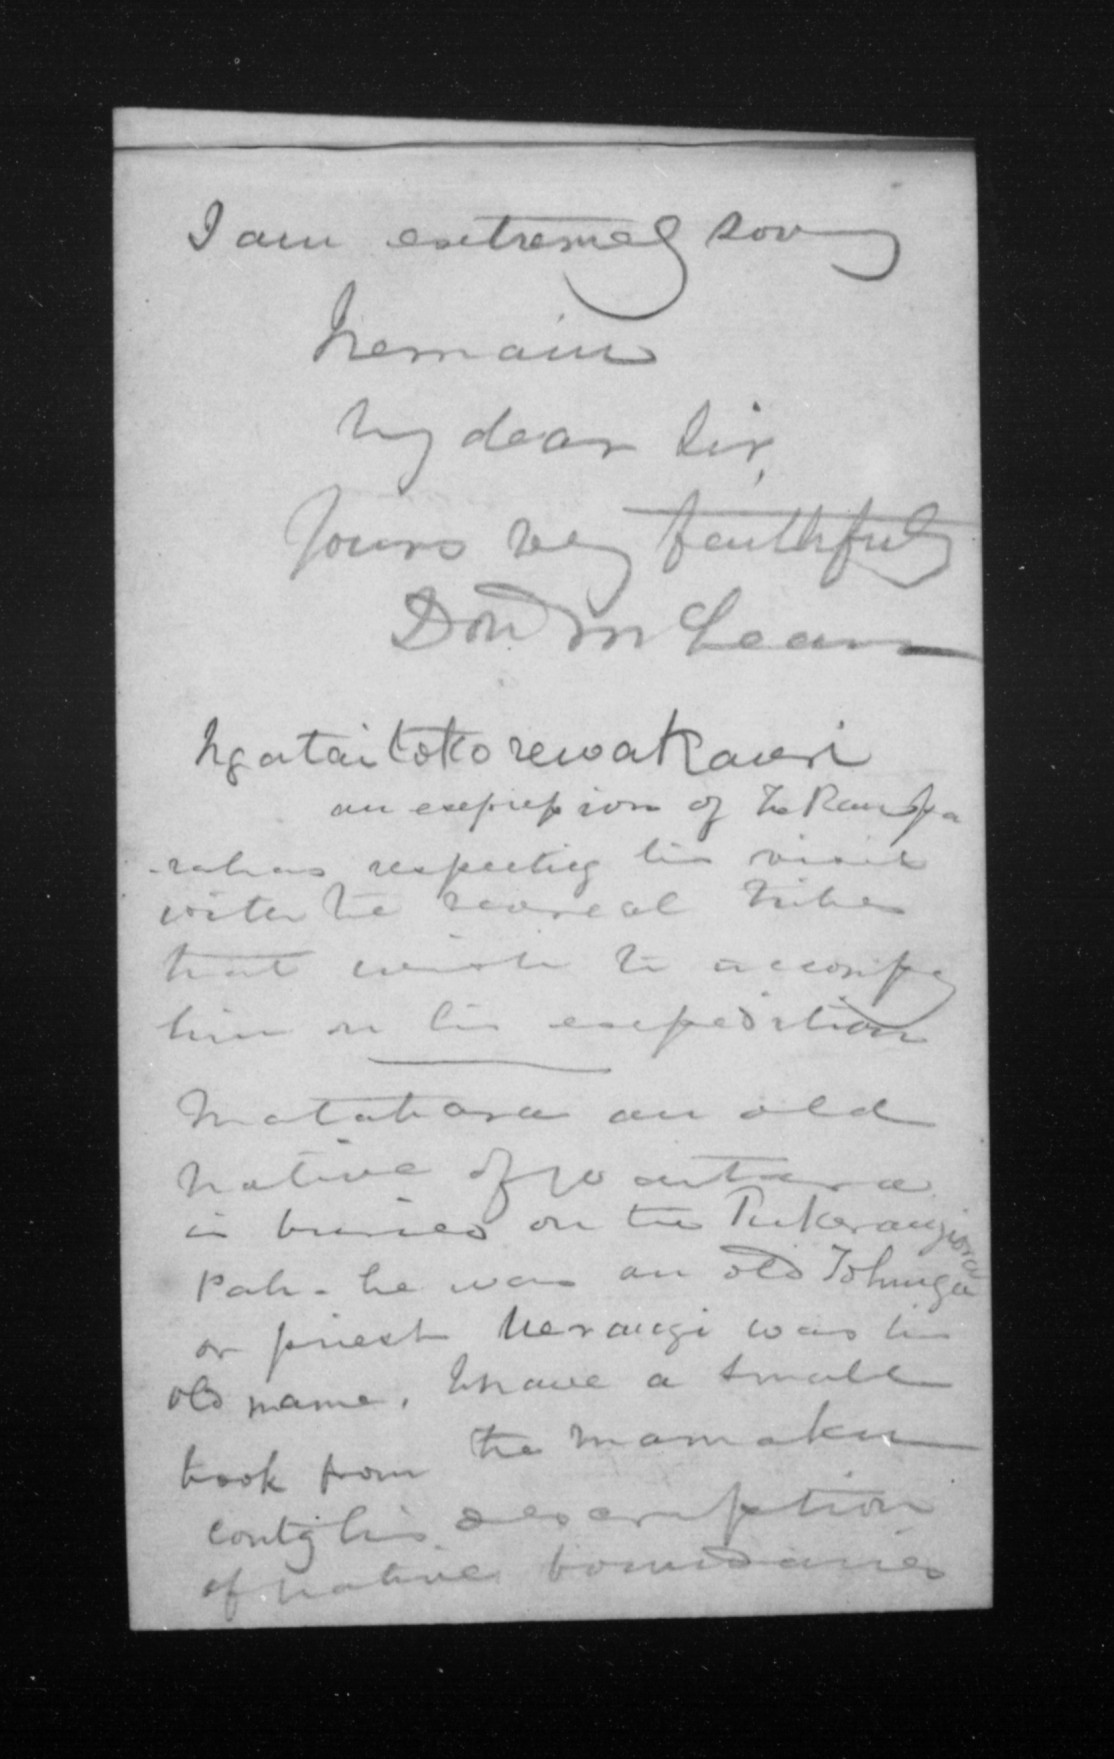 I am extremely sorry
I remain
My dear Sir,
Yours very faithfully
Don'd McLean
Ngataitokorewakaueri
an expression of Te Raupa
-rahas respecting his visit
with the several tribes
that wish to accompy
him on his expedition
Matahara an old
native of Waitara
is buried on the Pukerangiora
Pah - he was an old Tohunga
or priest Uerangi was his
old name. I have a small
book from the Mamaku
contg his description
of native boundaries